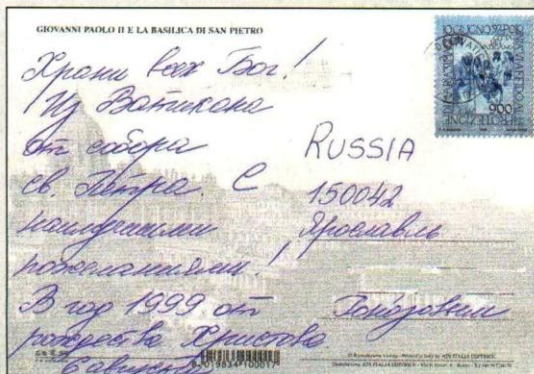 GIOVANNI PAOLO II E LA BASILICA DI SAN PIETRO
Храни всех Бог!
Из Ватикана
от собора
св. Петра. С
наилучшими
пожеланиями!
В год 1999 от
рождества Христова
RUSSIA
150042
Ярославль
900
8 019834 100017